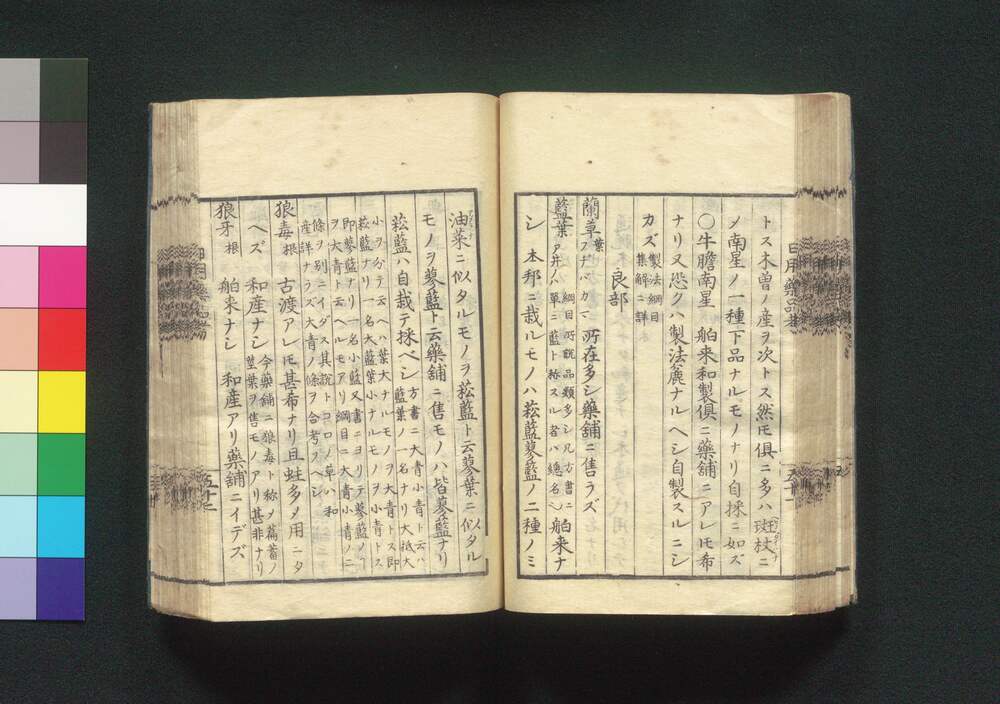 トス木曽ノ産ヲ次トス然𪜈俱ニ多ハ斑杖ニ
メ南星ノ一種下品ナルモノナリ自採ニ如ズ
〇牛膽南星 舶来和製俱ニ藥舗ニアレ𪜈希
ナリ又恐クハ製法麁ナルヘシ自製スルニシ
カズ 製法綱目
集解ニ詳
良部
蘭草葉 フヂバカマ 所在多シ藥舗ニ售ラズ
藍葉 綱目所説品類多シ凡方書ニ
アイノハ 單ニ藍ト称スル者ハ總名 舶来ナ
シ 本邦ニ栽ルモノハ菘藍蓼藍ノ二種ノミ
油菜ニ似タルモノヲ菘藍ト云蓼葉ニ似タル
モノヲ蓼藍ト云藥舗ニ售モノハ皆蓼藍ナリ
菘藍ハ自栽テ採ベシ 方書ニ大青小青ト云ハ
藍葉ノ一名ナリ大抵大
小ヲ分テ云ヘハ葉大ナルモノヲ大青トス即
菘藍ナリ一名大藍葉小ナルモノヲ小青トス
即蓼藍ナリ一名小藍又書ニヨリテ蓼藍ノ
ヲ大青ト云ヘルモアリ綱目ニ大青小青ノ二
條ヲ別ニイダス其説トコロノ草ハ和
産詳ナラズ大青ノ條ヲ合考スヘシ
狼毒根 古渡アレ𪜈甚希ナリ且蛀多メ用ニタ
ヘズ 和産ナシ 今藥舗ニ狼毒ト称メ萹蓄ノ
莖葉ヲ售モノアリ甚非ナリ
狼牙根 舶来ナシ 和産アリ藥舗ニイデズ
日用藥品考
五十二